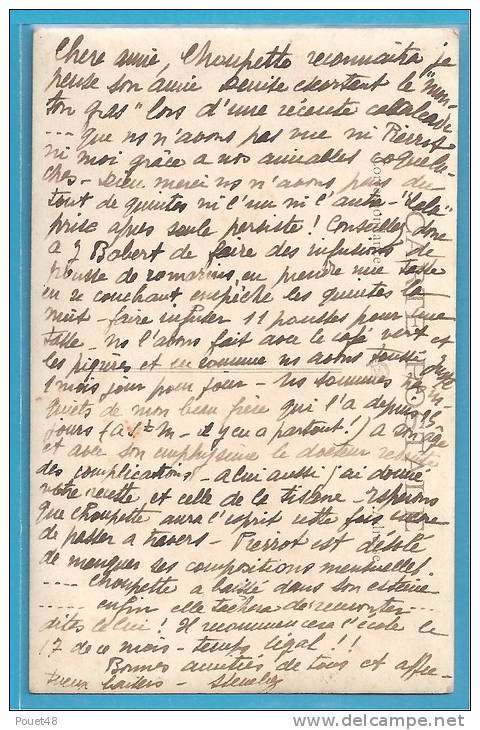 Chere amie, Choupette reconnaitra je
pense son amie Denise escortant le "mou-
ton gras" lors d'une récente cavalcade
---- que ns n'avons pas vue ni Pierrot
ni moi grâce a nos aimables coquelu-
ches - Dieu merci ns n'avons pas du
tout de quintes ni l'un ni l'autre - "
prise après seule persiste! Conseillez donc
a J Robert de faire des infusions de
pousse de romarins, en prendre une tasse
en se couchant empêche les quintes la
nuit - faire infuser 11 pousses pour une
tasse - ns l'avons fait avec le café vert et
les piqûres et en somme ns avons toussé juste
1 mois jour pour jour - Ns sommes in-
quiets de mon beau frère qui l'a depuis 15
jours (a St M - il y en a partout!) a son âge
et avec son emphysème le docteur redoute
des complications - a lui aussi j'ai donné
votre recette et celle de la tisane - Esperons
que Choupette aura l'esprit cette fois encore
de passer a travers - Pierrot est désolé
de manquer ses compositions mensuelles.
---- Choupette a baissé dans son estime
---- enfin elle tâchera de remonter
dites le lui! Il recommencera l'école le
17 de ce mois - temps légal!!
Bonnes amitiés de tous et affec-
tueux baisers -
CARTE POSTALE
Correspondance
Pouet48
http://www.delcampe.net